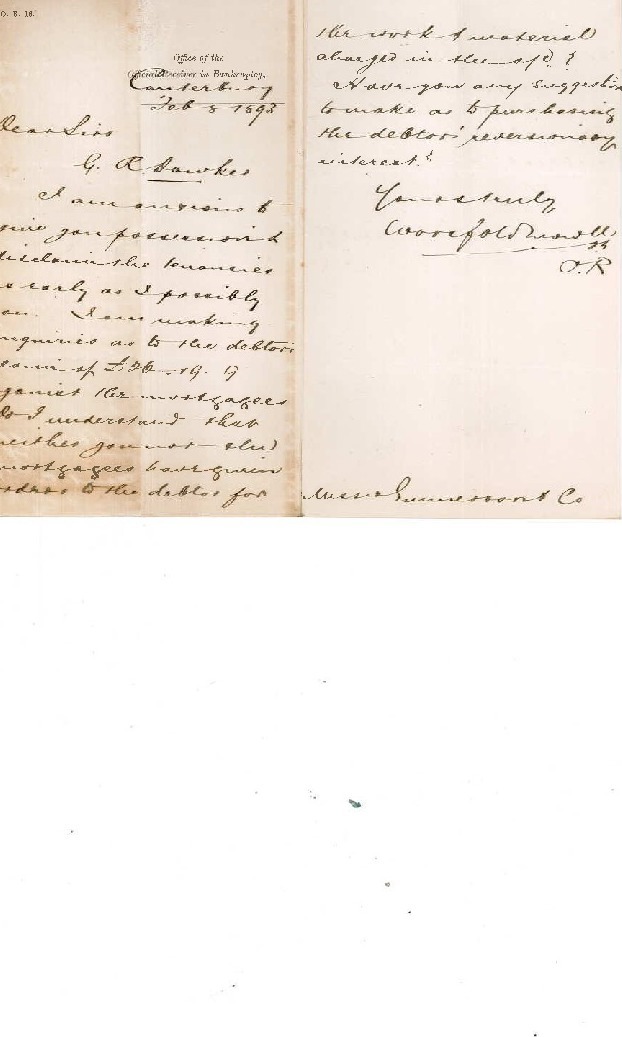 O. R. 16.
Office of the
Official Receiver in Bankruptcy,
Canterbury
Feb 8 1893
Dear Sirs
G. R. Dawkes
I am anxious to
give you possession &
disclaim the tenancies
as early as I possibly
can. I am making
inquiries as to the debtors
claim of £36-19. 9
against the mortgagees
Do I understand that
neither you nor the
mortgagees have given
orders to the debtor for
the work & material
charged in the a/c ?
Have you any suggestion
to make as to purchasing
the debtors' reversionary
interest?
Yours truly,
Worsfold Mowll
O.R
Messrs & Co